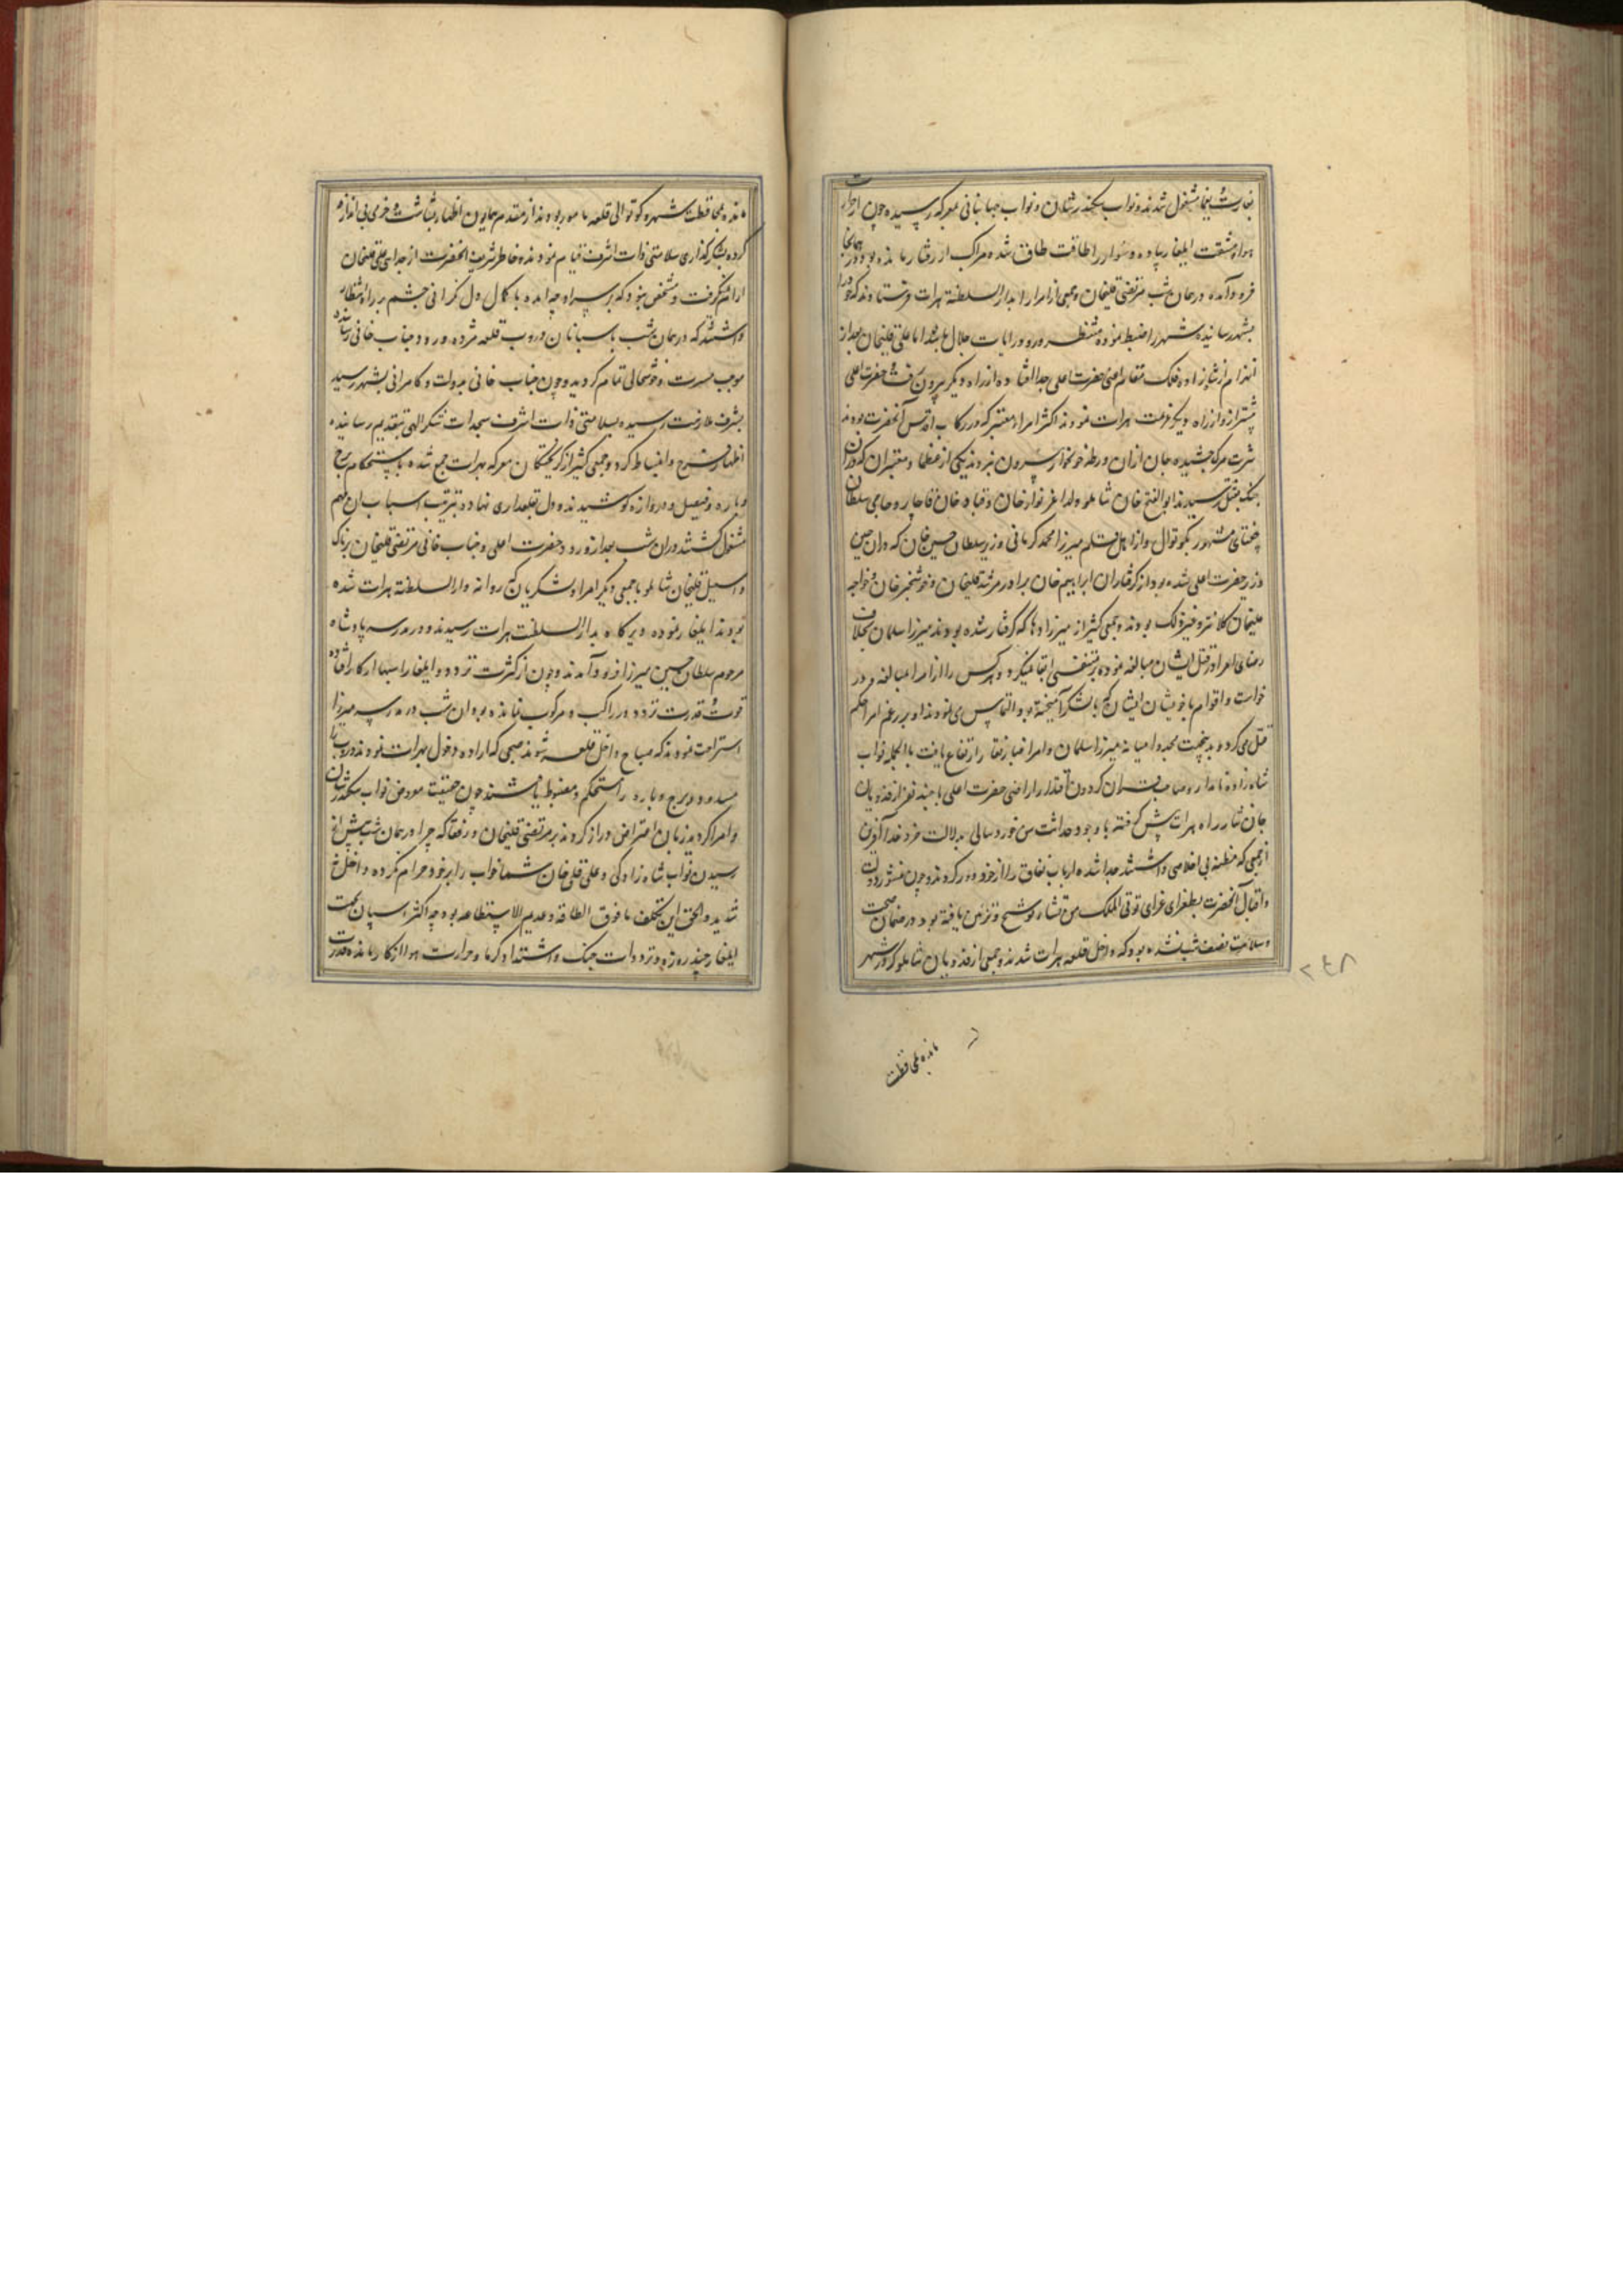 بغارت و یغما مشغول شدند و نواب سکندر شان و نواب جهانبانی بمعرکه رسیده چون از حرارت
هوا و مشقت ایلغار پیاده و سوار را طاقت طاق شده مراکب از رفتار باز مانده بود در همانجا
فرود آمده در همان شب مرتضی قلیخان و جمعی از امرا را بدار السلطنه هرات فرستادند که خود را
بشهر رسانیده شهر را ضبط نموده منتظر ورود رایات جلال باشند اما علی قلیخان بعد از
انهزام از شاهزاده فلک مقام اعنی حضرت اعلی جدا افتاده از راه دیگر بیرون رفت و حضرت اعلی
پیشتر از او از راه دیگر عزیمت هرات نمودند اکثر امراء معتبر که در رکاب اقدس آنحضرت بودند
شربت مرگ چشیده جان از آن ورطه خونخوار بیرون نبردند یکی از عظما و معتبران که در آن
جنگ بقتل رسیدند ابوالفتح خان شاملو ولد اغرلو خان و قباد خان قاجار و حاجی سلطان
چغتای مشهور بکوتوال و از اهل قلم میرزا محمد کرمانی وزیر سلطان حسین خان که در آن حین
وزیر حضرت اعلی شده بود از گرفتاران ابراهیم خان برادر مرشد قلیخان و خوشخبر خان و خواجه
کلانتر و غیر ذلک بودند و جمعی کثیر از میرزاده‌ها که گرفتار شده بودند میرزا سلمان بخلاف
رضای امرا در قتل ایشان مبالغه نموده بر متنفسی ابقا نمیکرد و هر کس را از امرا مبالغه در
خواست و اقوام با خویشان ایشان که با لشکر آمیخته بود التماس می نمودند او بر رغم امرا حکم
قتل می کرد و بدینجهت مجددا میانه میرزا سلمان و امرا غبار نقار ارتفاع یافت بالجمله نواب
شاهزاده نامدار و صاحبقران گردون اقتدار اراضی حضرت اعلی با چند نفر از فدویان
جان نثار راه هرات پیش گرفته با وجود حداثت سن و خوردسالی بدلالت خرد خدا آفرین
از جمعی که مظنه بی اخلاصی داشتند جدا شده ارباب نفاق را از خود دور کردند و چون منشور دولت
و اقبال آنحضرت بطغرای غرای توتی الملک من تشاء توشیح و تزیین یافته بود در ضمان صحت
و سلامت نصف شب نشده بود که داخل قلعه هرات شدند و جمعی از فدویان شاملو که در شهر
۲۴۸
مانده بمحافظت
مانده بمحافظت شهر و کوتوالی قلعه مامور بودند از مقدم همایون اظهار بشاشت و خرمی بی اندازه
کرده بشکر گذاری سلامتی ذات اشرف قیام نمودند و خاطر شریف آنحضرت از جدایی علی قلیخان
آرام نمیگرفت و مشخص نبود که بر سر او چه آمده با کمال دل نگرانی چشم بر راه انتظار
داشتند که در همان شب پاسبانان دروب قلعه مژده ورود جناب خانی رسانیده
موجب مسرت و خوشحالی تمام گردید و چون جناب خانی بدولت و کامرانی بشهر رسید
بشرف ملازمت رسیده بسلامتی ذات اشرف سجدات شکر الهی بتقدیم رسانیده
اظهار فرح و انبساط کرد و جمعی کثیر از گریختگان معرکه بهرات جمع شده باستحکام برج
و باره و فصیل و دروازه کوشیدند و دل بقلعداری نهاده بترتیب اسباب آن مهم
مشغول گشتند در آن شب بعد از ورود حضرت اعلی و جناب خانی مرتضی قلیخان پرناک
و اسمعیل قلیخان شاملو با جمعی دیگر امرا و لشکریان که روانه دار السلطنه هرات شده
بودند ایلغار نموده دیرگاه بدار السلطنت هرات رسیدند و در مدرسه پادشاه
مرحوم سلطان حسین میرزا فرود آمدند و چون از کثرت تردد و ایلغار اسبها از کار افتاده
قوت و قدرت تردد در راکب و مرکوب نمانده بود آن شب در مدرسه میرزا
استراحت نمودند که صباح داخل قلعه شوند صبحی که اراده دخول هرات نمودند دروب را
مسدود و برج و باره را مستحکم و مضبوط یافتند چون حقیقت معروض نواب سکندر شان
و امرا کردید زبان اعتراض دراز کردند بر مرتضی قلیخان و رفقا که چرا در همان شب پیش از
رسیدن نواب شاه زادگی و علی قلی خان شما خواب را بر خود حرام نکرده داخل
شدید و الحق این تکلیف ما فوق الطاقه و عدیم الاستطاعه بود چه اکثر اسپان بجهت
ایلغار چند روزه و ترددات جنگ و اشتداد گرما و حرارت هوا از کار مانده قدرت